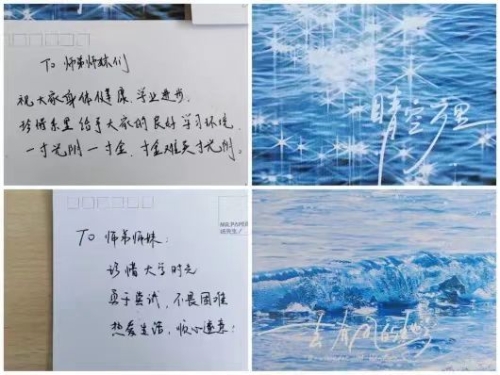 To 师弟师妹们
祝大家身体健康，学业进步，
珍惜系里给予大家的良好学习环境，
一寸光阴一寸金，寸金难买寸光阴。
晴空理
To 师弟师妹：
珍惜大学时光
勇于尝试，不畏困难
热爱生活，顺心遂意！
去有风的地方